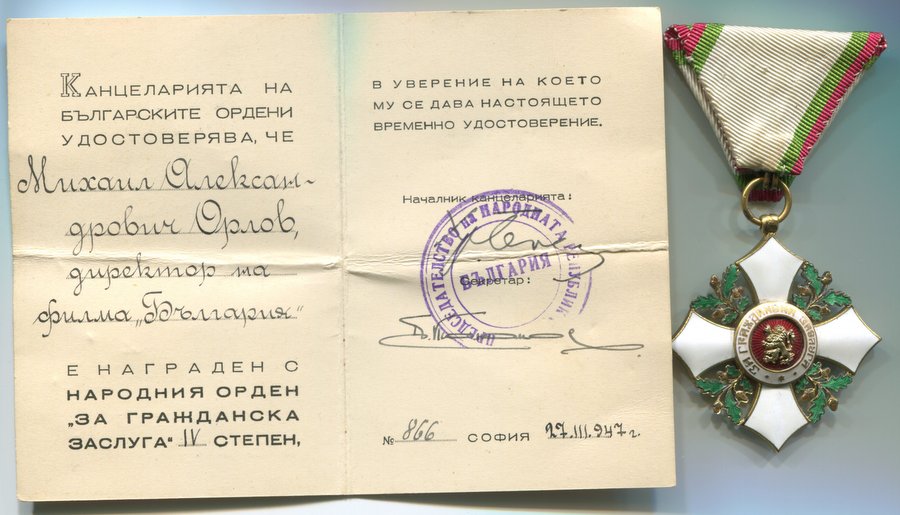 КАНЦЕЛАРИЯТА НА
БЪЛГАРСКИТЕ ОРДЕНИ
УДОСТОВЕРЯВА, ЧЕ
Михаил Алексан-
дрович Орлов,
директор на
филма „България“
Е НАГРАДЕН С
НАРОДНИЯ ОРДЕН
„ЗА ГРАЖДАНСКА
ЗАСЛУГА“ IV СТЕПЕН,
В УВЕРЕНИЕ НА КОЕТО
МУ СЕ ДАВА НАСТОЯЩЕТО
ВРЕМЕННО УДОСТОВЕРЕНИЕ.
Началник канцеларията:
ПРЕДСЕДАТЕЛСТВО НА НАРОДНАТА РЕПУБЛИКА
БЪЛГАРИЯ
Секретар:
№ 866 СОФИЯ 27.III.947 г.
ЗА ГРАЖДАНСКА ЗАСЛУГА